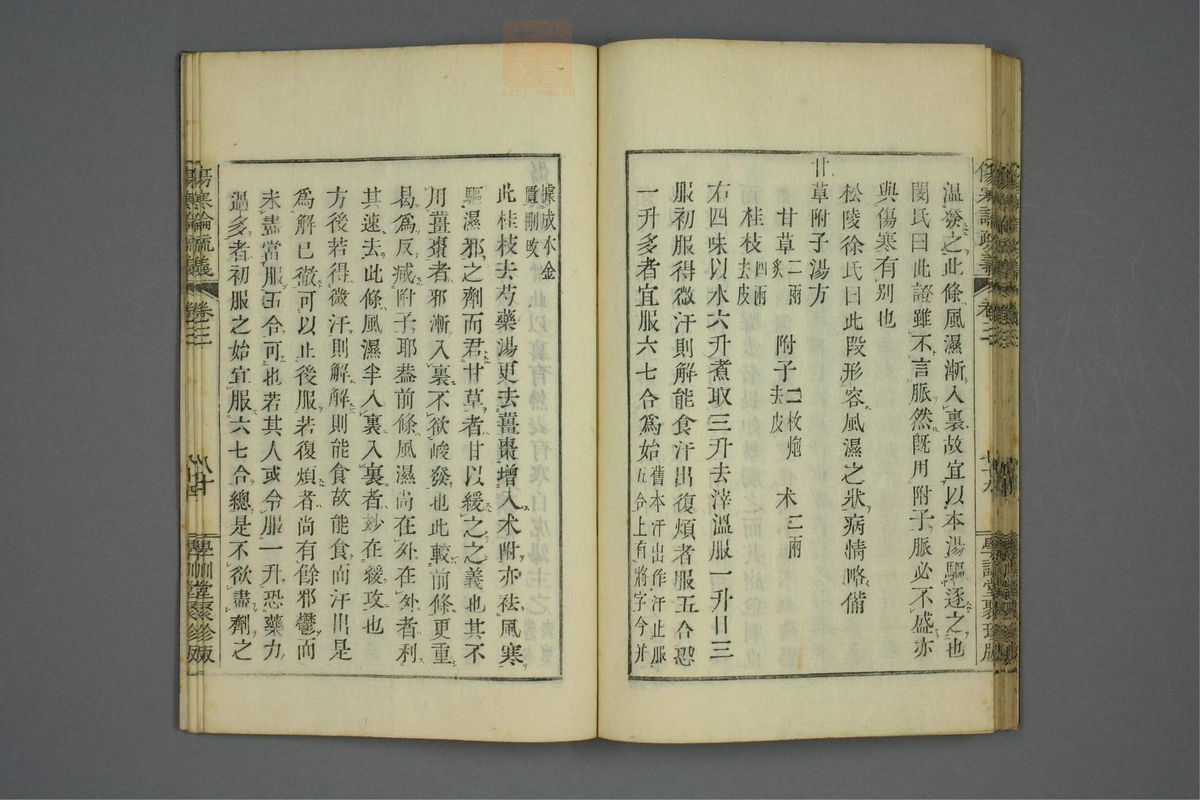 溫發之此條風濕漸入裏故宜以本湯驅逐之也
閔氏曰此證雖不言脈然既用附子脈必不盛亦
與傷寒有別也
松陵徐氏曰此段形容風濕之狀病情略備
甘草附子湯方
甘草二兩炙 附子二枚炮去皮 朮二兩
桂枝四兩去皮
右四味以水六升煮取三升去滓溫服一升日三
服初服得微汗則解能食汗出復煩者服五合恐
一升多者宜服六七合爲始舊本汗出作汗止服五合上有將字今并
據成本金匱刪改
此桂枝去芍藥湯更去薑棗增入朮附亦祛風寒
驅濕邪之劑而君甘草者甘以緩之之義也其不
用薑棗者邪漸入裏不欲峻發也此較前條更重
曷爲反減附子耶葢前條風濕尚在外在外者利
其速去此條風濕半入裏入裏者妙在緩攻也
方後若得微汗則解解則能食故能食而汗出是
爲解已徹可以止後服若復煩者尚有餘邪鬱而
未盡當服五合可也若其人或令服一升恐藥力
過多者初服之始宜服六七合總是不欲盡劑之
傷寒論疏義 卷三 學訓堂聚珍版